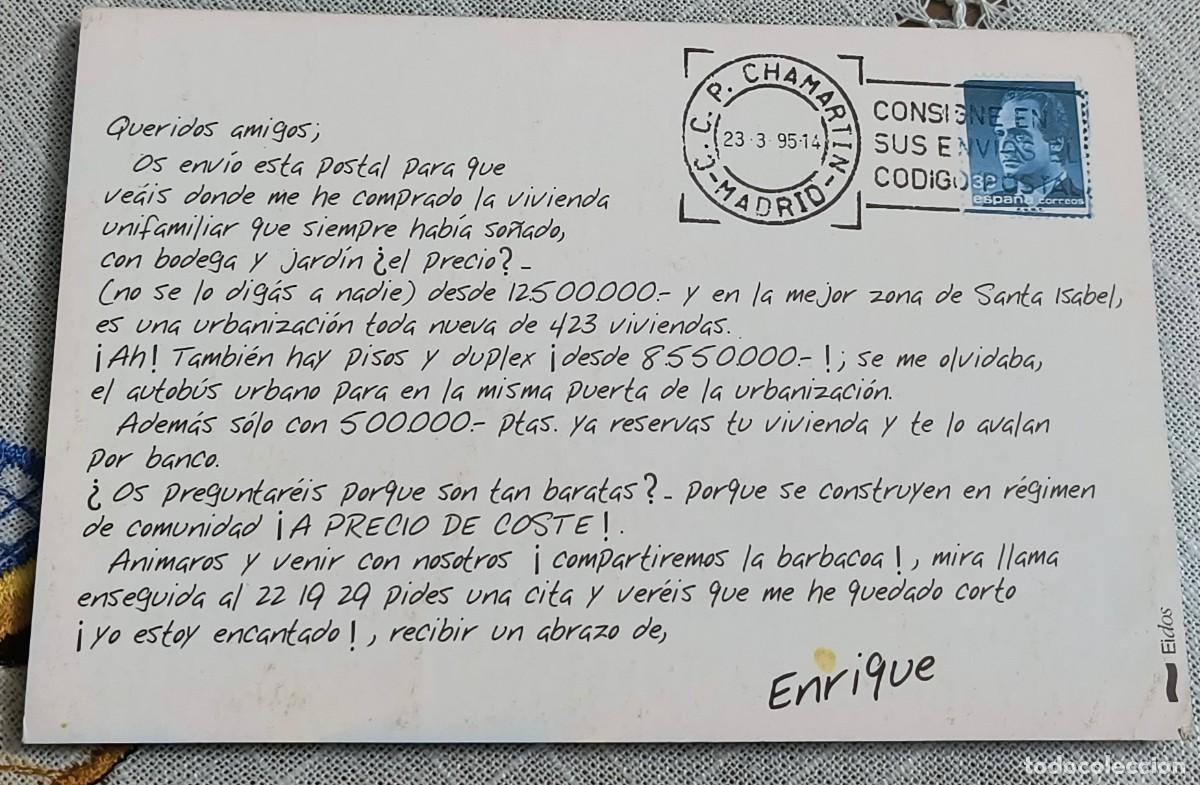 C.C.P. CHAMARTIN
23·3·95·14
-MADRID-
CONSIGNE EN
SUS ENVIOS EL
CODIGO POSTAL
españa correos
Queridos amigos;
Os envío esta postal para que
veáis donde me he comprado la vivienda
unifamiliar que siempre había soñado,
con bodega y jardín ¿el precio?-
(no se lo digás a nadie) desde 12.500.000.- y en la mejor zona de Santa Isabel,
es una urbanización toda nueva de 423 viviendas.
¡Ah! También hay pisos y duplex ¡desde 8.550.000.- !; se me olvidaba,
el autobús urbano para en la misma puerta de la urbanización.
Además sólo con 500.000.- ptas. ya reservas tu vivienda y te lo avalan
por banco.
¿Os preguntaréis porque son tan baratas?- porque se construyen en régimen
de comunidad ¡A PRECIO DE COSTE!.
Animaros y venir con nosotros ¡compartiremos la barbacoa!, mira llama
enseguida al 22 19 29 pides una cita y veréis que me he quedado corto
¡yo estoy encantado!, recibir un abrazo de,
Enrique
Eidos
todocoleccion